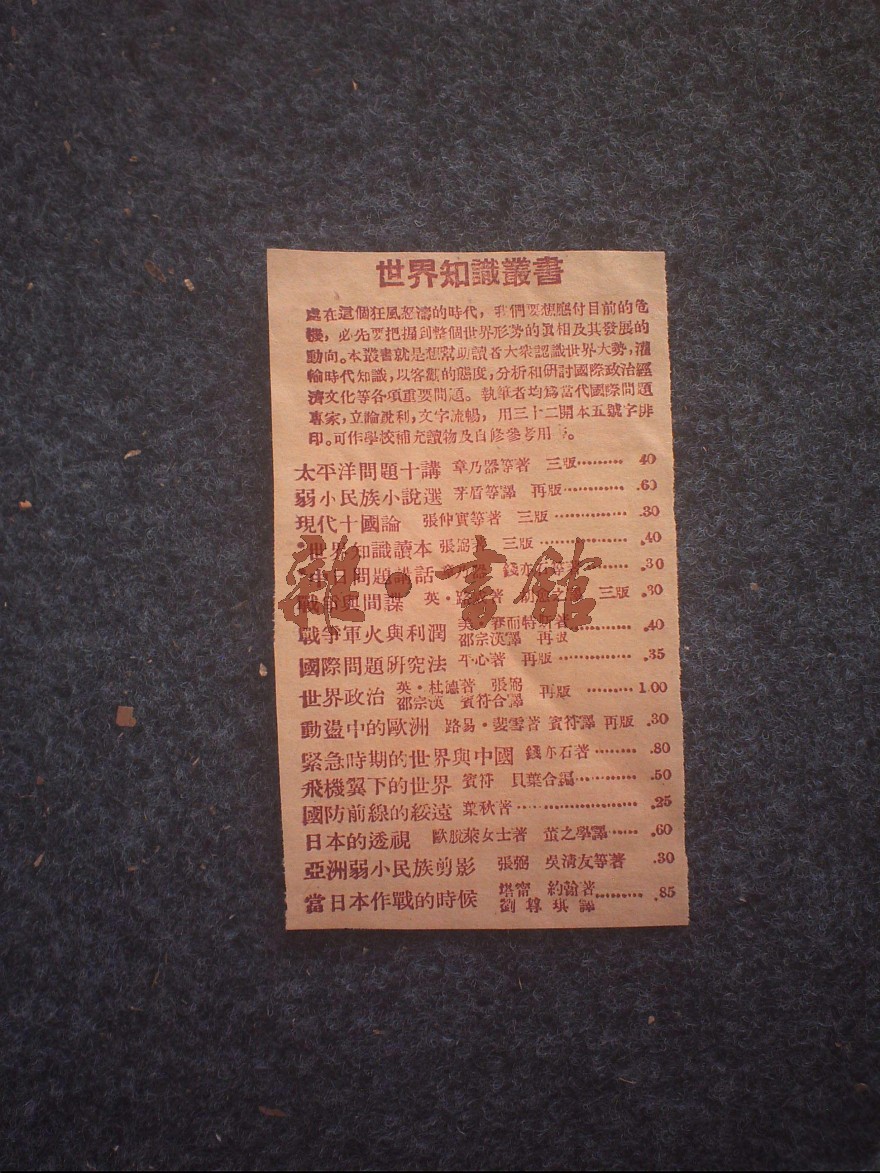 世界知識叢書
處在這個狂風怒濤的時代，我們要想應付目前的危
機，必先要把握到整個世界形勢的眞相及其發展的
動向。本叢書就是想幫助讀者大衆認識世界大勢，灌
輸時代知識，以客觀的態度，分析和研討國際政治經
濟文化等各項重要問題。執筆者均爲當代國際問題
專家，立論銳利，文字流暢，用三十二開本五號字排
印。可作學校補充讀物及自修參考用
太平洋問題十講 章乃器等著 三版 ········· 40
弱小民族小說選 茅盾等譯 再版 ··········· .60
現代十國論 張仲實等著 三版 ············· .30
世界知識讀本 張弼著 三版 ·········· .40
中日問題講話 章乃器 錢亦石等著 .30
戰爭與間諜 英· 三版 .30
戰爭軍火與利潤 美· 邵宗漢譯 再版 .40
國際問題硏究法 平心著 再版 ············ .35
世界政治 英·杜德著 張弼 邵宗漢 賓符合譯 再版 ········· 1.00
動盪中的歐洲 路易·斐雪著 賓符譯 再版 .30
緊急時期的世界與中國 錢亦石著 ········ .80
飛機翼下的世界 賓符 貝葉合編 ············ .50
國防前線的綏遠 葉秋著 ······················ .25
日本的透視 歐脫萊女士著 董之學譯 ······ .60
亞洲弱小民族剪影 張弼 吳清友等著 .30
當日本作戰的時候 塔甯 約翰著 劉尊琪譯 ········· .85
雜·書館